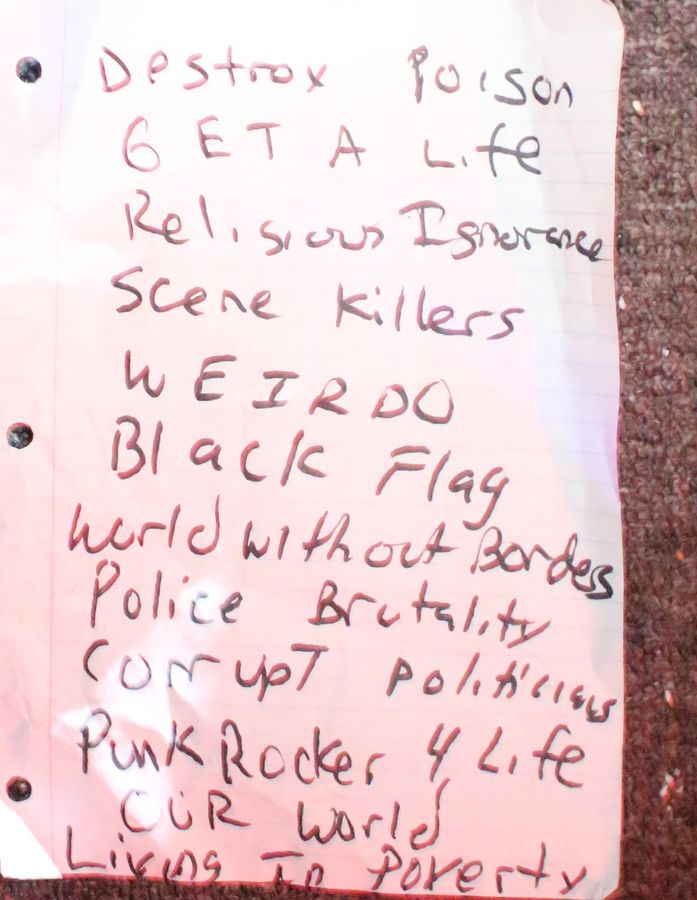 Destrox Poison
GET A Life
Religious Ignorance
Scene Killers
WEIRDO
Black Flag
World Without Borders
Police Brutality
Corrupt Politicians
Punk Rocker 4 Life
OUR World
Living In Poverty